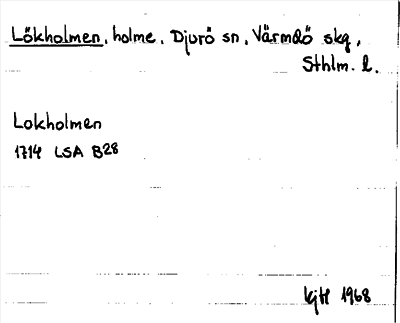 Lökholmen, holme, Djurö sn, Värmdö skg,
Sthlm. l.
Lokholmen
1714 LSA B28
1968